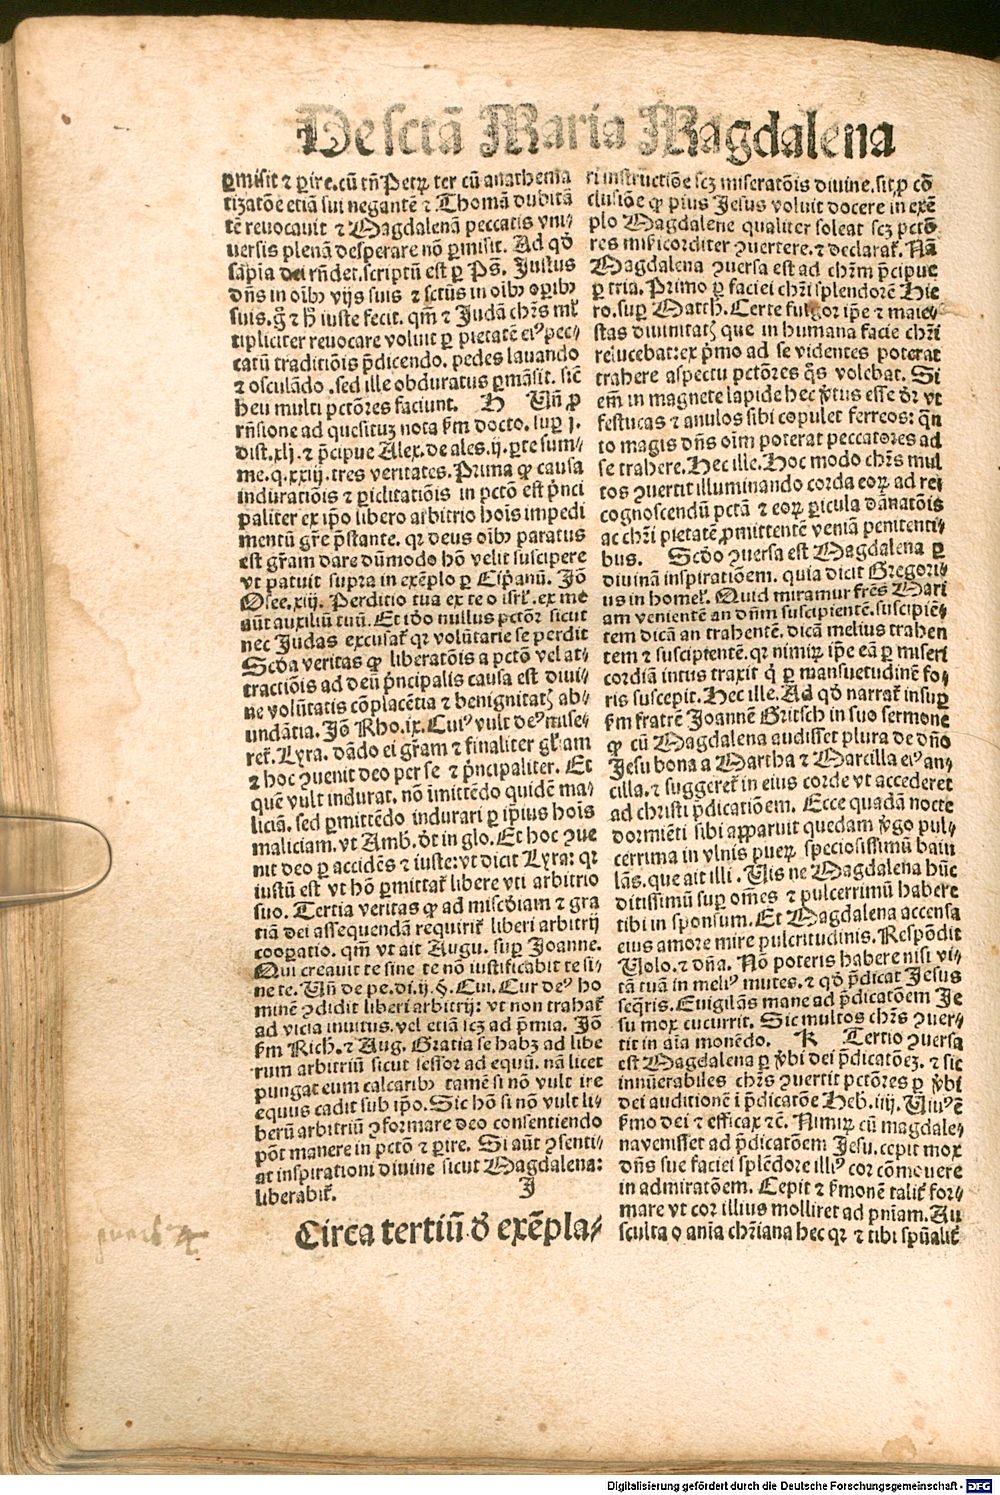 De sctā Maria Magdalena
ꝑmisit ⁊ ꝑire. cū tn̄ Petrꝝ ter cū anathema
tizatōe etiā sui negantē ⁊ Thomā dubitā
tē reuocauit ⁊ Magdalenā peccatis vni-
uersis plenā desperare nō ꝑmisit. Ad qd̓
sapīa dei rn̄det. scriptū est ꝑ Ps̄. Iustus
dn̄s in oīb₉ vijs suis ⁊ sctūs in oīb₉ oꝑib₉
suis. g̊ ⁊ h̓ iuste fecit. qm̄ ⁊ Judā chr̄s ml̓
tipliciter reuocare voluit ꝑ pietatē ei⁹ pec-
catū traditiōis p̄dicendo. pedes lauando
⁊ osculādo. sed ille obduratus ꝑmāsit. sic̄
heu multi pctōres faciunt. H Un̄ ꝓ
rn̄sione ad quesituꝫ nota s̄m docto. suꝑ j.
dist. xlj. ⁊ p̄cipue Alex. de ales. ij. ꝑte sum-
me. q. xxiij. tres veritates. Prima ꝙ causa
induratiōis ⁊ ꝑiclitatiōis in pctō est p̓nci
paliter ex ip̄o libero arbitrio hoīs impedi
mentū gr̄e p̄stante. qꝛ deus oīb₉ paratus
est gr̄am dare dūmodo hō velit suscipere
vt patuit supra in exēplo ꝑ Cip̄anū. Jō
Osee. xiij. Perditio tua ex te o isrl̓. ex me
aūt auxiliū tuū. Et id̓o nullus pctōr sicut
nec Judas excusat̓ qꝛ volūtarie se perdit
Scd̓a veritas ꝙ liberatōis a pctō vel at-
tractiōis ad deū p̓ncipalis causa est diui-
ne volūtatis cōplacētia ⁊ benignitatꝭ ab-
undātia. Jō Rho. ix. Cui⁹ vult de⁹ mise-
ret̓. Lyra. dādo ei gr̄am ⁊ finaliter gl̓iam
⁊ hoc ꝯuenit deo per se ⁊ p̓ncipaliter. Et
quē vult indurat. nō īmittēdo quidē ma-
liciā. sed ꝑmittēdo indurari ꝑ ip̄ius hoīs
maliciam. vt Amb. dt̓ in glo. Et hoc ꝯue
nit deo ꝑ accidēs ⁊ iuste: vt dicit Lyra: qꝛ
iustū est vt hō ꝑmittat̓ libere vti arbitrio
suo. Tertia veritas ꝙ ad misc̓diam ⁊ gra
tiā dei assequendā requirit̓ liberi arbitrij
cooꝑatio. qm̄ vt ait Augu. suꝑ Joanne.
Qui creauit te sine te nō iustificabit te si-
ne te. Un̄ de pe. di. ij. §. Cui. Cur de⁹ ho
minē ꝯdidit liberi arbitrij: vt non trahat̓
ad vicia inuitus. vel etiā scꝫ ad p̄mia. Jō
s̄m Rich. ⁊ Aug. Gratia se habꝫ ad libe
rum arbitriū sicut sessor ad equū. nā licet
pungat eum calcarib₉ tamē si nō vult ire
equus cadit sub ip̄o. Sic hō si nō vult li-
berū arbitriū ꝯformare deo consentiendo
pōt manere in pctō ⁊ ꝑire. Si aūt ꝯsenti-
at inspirationi diuine sicut Magdalena:
liberabit̓. J
Circa tertiū d̓ exēpla-
ri instructiōe scꝫ miseratōis diuine. sit ꝓ cō
clusiōe ꝙ pius Jesus voluit docere in exē
plo Magdalene qualiter soleat scꝫ pctō-
res mis̓icorditer ꝯuertere. ⁊ declarat̓. Nā
Magdalena ꝯuersa est ad chr̄m p̄cipue
ꝑ tria. Primo ꝑ faciei chr̄i splendorē Hie
ro. suꝑ Matth. Certe fulgor ip̄e ⁊ maie-
stas diuinitatꝭ que in humana facie chr̄i
relucebat: ex p̓mo ad se videntes poterat
trahere aspectu pctōres q̓s volebat. Si
em̄ in magnete lapide hec v̓tus esse dr̄ vt
festucas ⁊ anulos sibi copulet ferreos: q̄n
to magis dn̄s oīm poterat peccatores ad
se trahere. Hec ille. Hoc modo chr̄s mul
tos ꝯuertit illuminando corda eoꝝ ad rei
cognoscendū pctā ⁊ eoꝝ ꝑicula dānatōis
ac chr̄i pietatē ꝓmittentē veniā penitenti-
bus. Scd̓o ꝯuersa est Magdalena ꝑ
diuinā inspiratiōem. quia dicit Gregori-
us in homel̓. Quid miramur fr̄es Mari
am venientē an dn̄m suscipientē. suscipiē-
tem dicā an trahentē. dicā melius trahen
tem ⁊ suscipientē. qꝛ nimiꝝ ip̄e eā ꝑ miseri
cordiā intus traxit q̓ ꝑ mansuetudinē fo-
ris suscepit. Hec ille. Ad qd̓ narrat̓ insuꝑ
s̄m fratrē Joannē Gritsch in suo sermone
ꝙ cū Magdalena audisset plura de dn̄o
Jesu bona a Martha ⁊ Marcilla ei⁹ an-
cilla. ⁊ suggeret̓ in eius corde vt accederet
ad christi p̄dicatiōem. Ecce quadā nocte
dormiēti sibi apparuit quedam v̓go pul-
cerrima in vlnis pueꝝ speciosissimū baiu
lās. que ait illi. Uis ne Magdalena hūc
ditissimū suꝑ om̄es ⁊ pulcerrimū habere
tibi in sponsum. Et Magdalena accensa
eius amore mire pulcritudinis. Respōdit
Uolo. ⁊ dn̄a. Nō poteris habere nisi vi-
tā tuā in meli⁹ mutes. ⁊ qd̓ p̄dicat Jesus
seq̓ris. Euigilās mane ad p̄dicatōem Je
su mox cucurrit. Sic multos chr̄s ꝯuer-
tit in aīa monēdo. K Tertio ꝯuersa
est Magdalena ꝑ v̓bi dei p̄dicatōeꝫ. ⁊ sic
innūerabiles chr̄s ꝯuertit pctōres ꝑ v̓bi
dei auditionē ī p̄dicatōe Heb. iiij. Uiu⁹ ē
s̓mo dei ⁊ efficax ⁊c̄. Nimiꝝ cū magdale-
na venisset ad p̄dicatōem Jesu. cepit mox
dn̄s sue faciei splēdore illi⁹ cor cōmouere
in admiratōem. Cepit ⁊ s̓monē talit̓ for-
mare vt cor illius molliret ad pn̄iam. Au
sculta o aīa chr̄iana hec qꝛ ⁊ tibi sp̄ualit̓
Digitalisierung gefördert durch die Deutsche Forschungsgemeinschaft - DFG